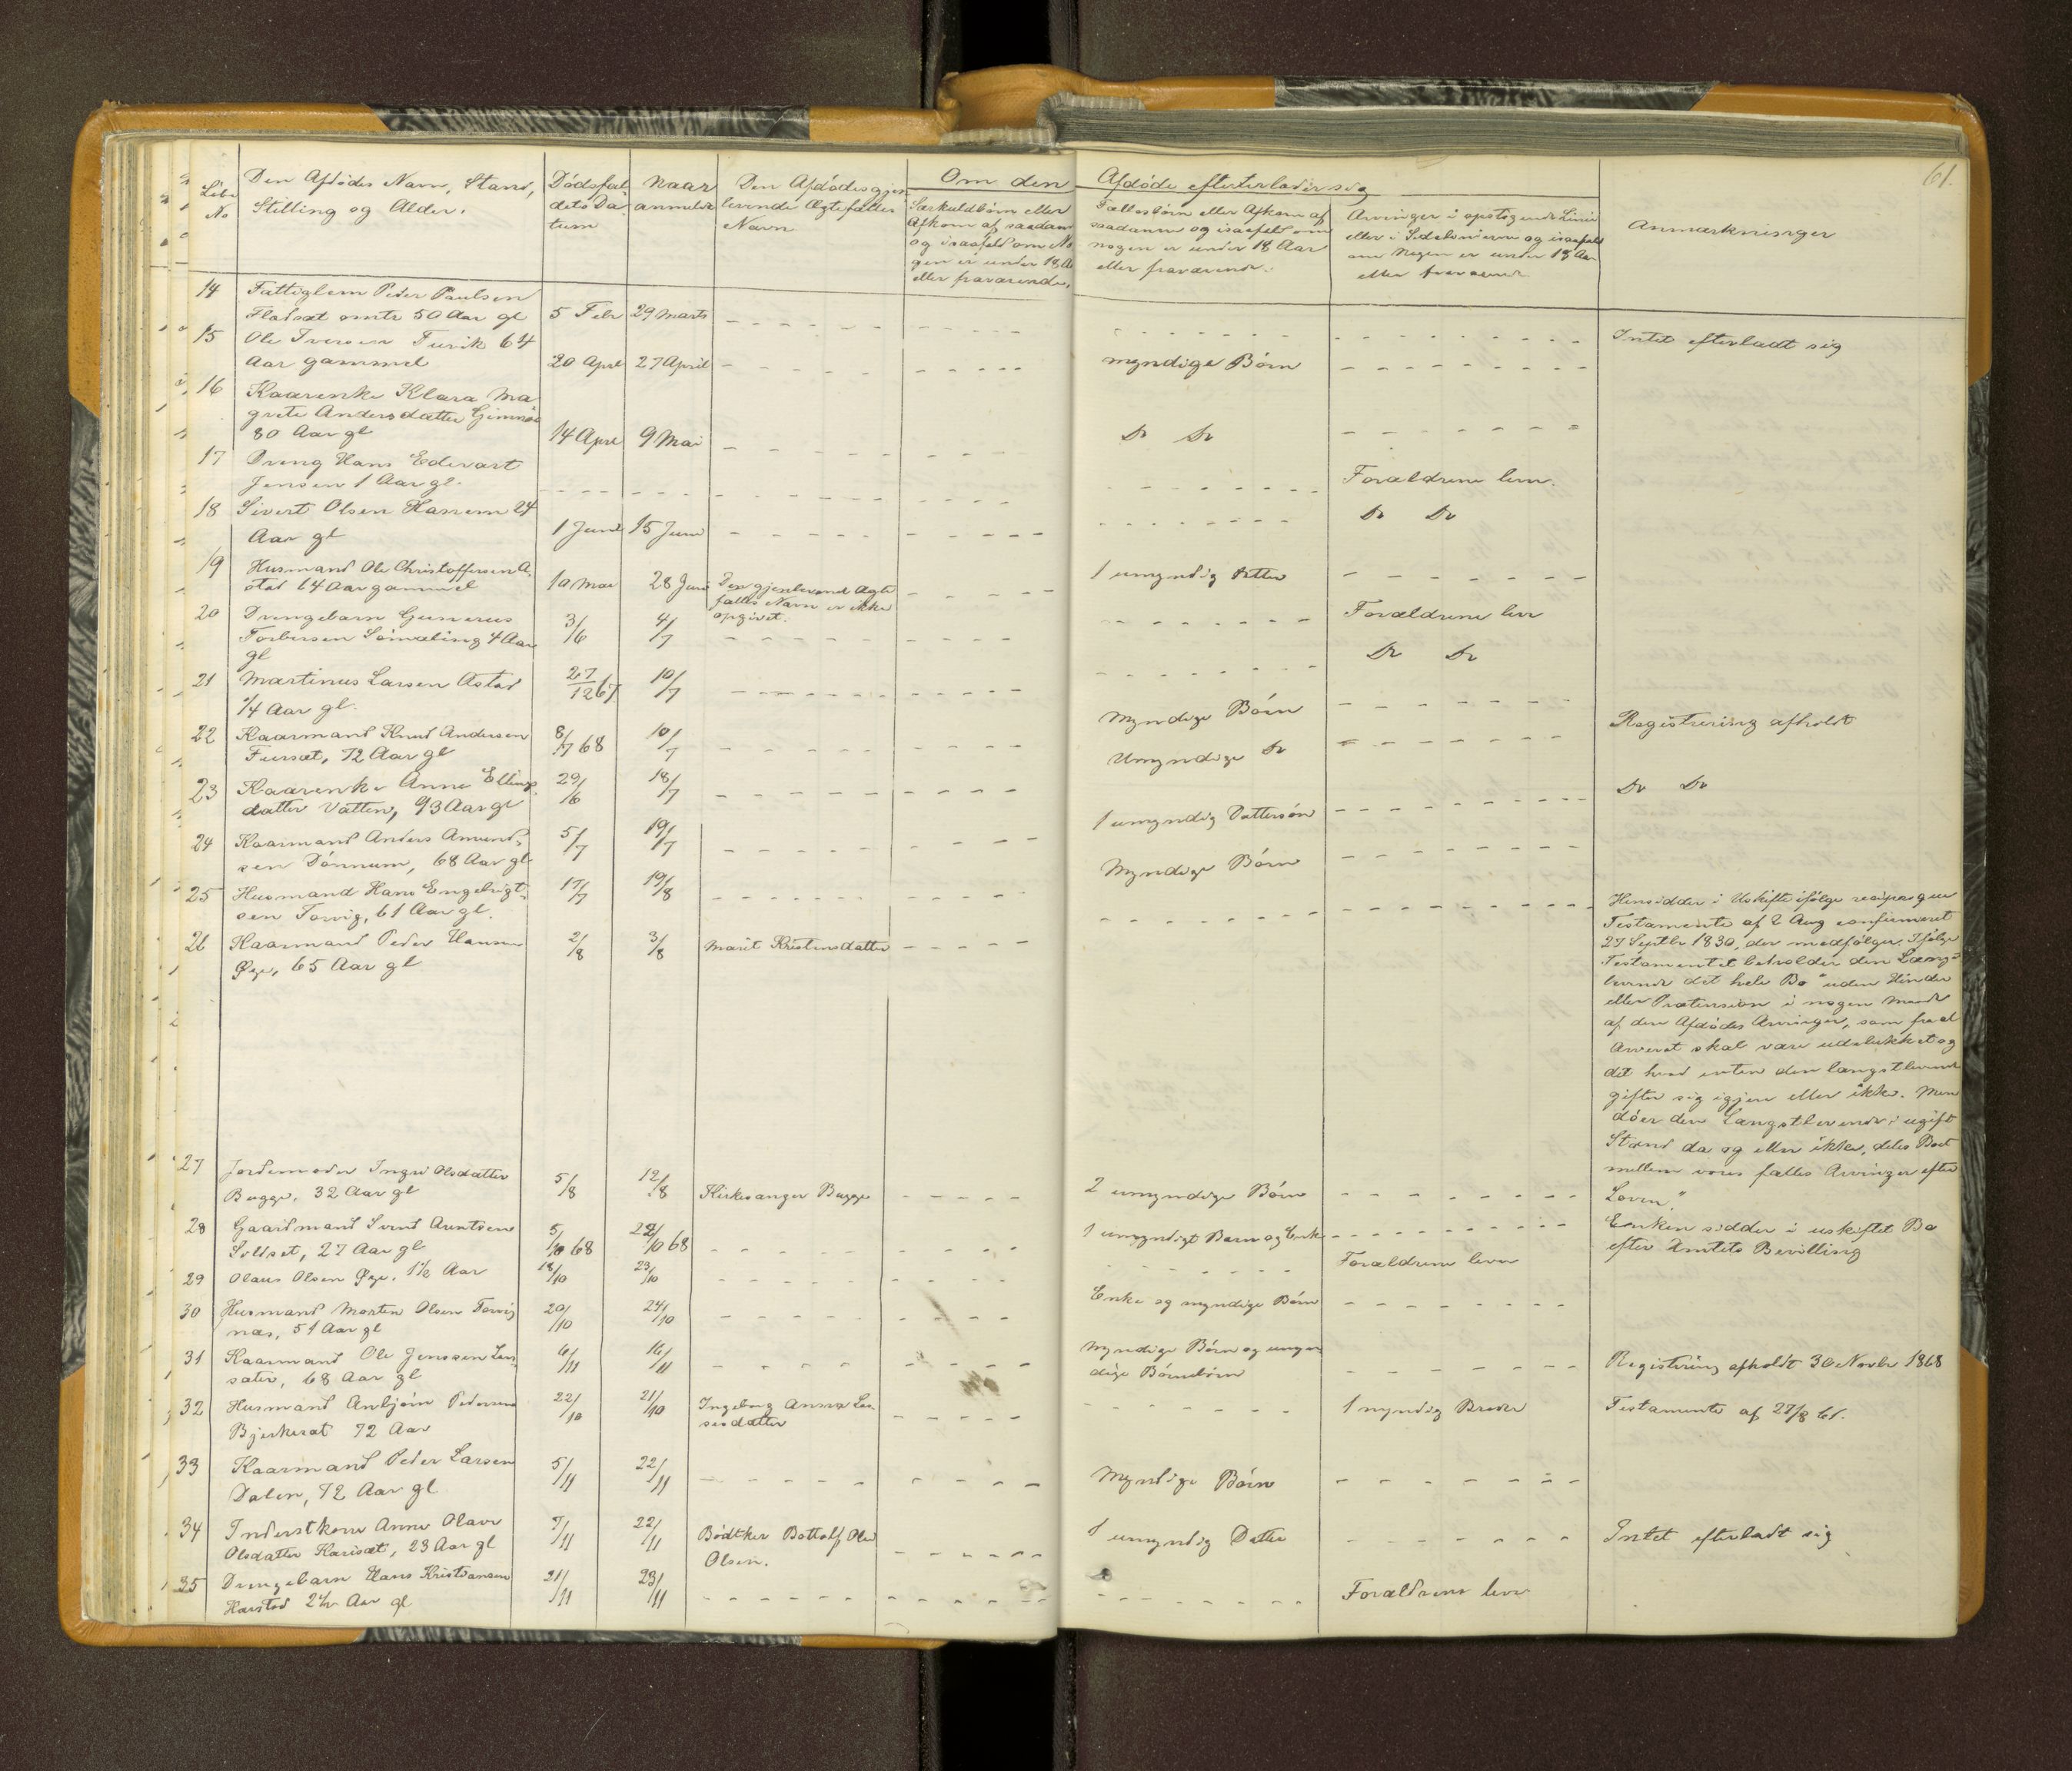 61.
Löbe No
Den Afdødes Navn, Stand,
Stilling og Alder.
Dødsfal-
dets Da-
tum
Naar
anmeldt
Den Afdødes gjen-
levende Ægtefælles
Navn
Om den
Særkuldbørn eller
Afkom af saadan
og isaafald om No
gen er under 18 A
eller fraværende.
Afdøde efterlader sig
Fællesbørn eller Afkom af
saadanne og isaafald om
nogen er under 18 Aar
eller fraværende.
Arvinger i opstigende Linie
eller i Sidelinierne og isaafald
om Nogen er under 18 Aar
eller fraværende
Anmærkninger
14 Fattiglem Peder Paulsen
Fladsæt omtr 50 Aar gl 5 Febr 29 Marts - - - - Intet efterladt sig
15 Ole Iversen Turvik 64
Aar gammel 20 Apri 27 April - - myndige Børn - -
16 Kaarenke Klara Ma
grete Andersdatter Gimnæs
80 Aar gl 14 Apri 9 Mai - - Do Do - -
17 Dreng Hans Edevart
Jensen 1 Aar gl. - - - - Forældrene leve.
18 Sivert Olsen Hanem 24
Aar gl 1 Juni 15 Juni - - - Do Do
19 Husmand Ole Christoffersen A-
stad 14 Aar gammel 10 Mai 28 Juni Den gjenlevende Ægte
fælles Navn er ikke
opgivet. - 1 umyndig Datter - -
20 Drengebarn Gunerus
Torbersen Sørvaling 4 Aar
gl 3/6 4/7 - - - Forældrene leve
21 Martinus Larsen Astad
1/4 Aar gl. 27/12 67 10/7 - - - Do Do
22 Kaarmand Knud Andersen
Furset, 72 Aar gl 8/7 68 10/7 - - Myndige Børn - Registrering afholdt
23 Kaarenke Anne Ellings-
datter Vatten, 93 Aar gl 29/6 18/7 - - Umyndige Do - Do Do
24 Kaarmand Anders Amund-
sen Dønnum, 68 Aar gl 5/7 19/7 - - 1 umyndig Dattersøn - -
25 Husmand Hans Engebrigt-
sen Torvig, 61 Aar gl. 17/7 19/8 - - Myndige Børn - -
26 Kaarmand Peder Hansen
Øye, 65 Aar gl 2/8 3/8 Marit Kristensdatter - - -
Hensidder i Uskifte ifølge
Testamente af 2 Aug confirmeret
27 Septbr 1830, der medfølger. Ifølge
Testamentet beholder den Læng-
levende det hele Bo "uden Hinder
eller Prætension i nogen Maade
af den Afdødes Arvinger, som fra al
Arveret skal være udelukket og
det hvad enten den længstlevende
gifter sig igjen eller ikke. Men
døer den Længstlevende i ugift
Stand da og eller ikke, deles Boet
mellem vores fælles Arvinger efter
Loven."
27 Jordemoder Ingri Olsdatter
Bugge, 32 Aar gl 5/8 12/8 Kirkesanger Bugge - 2 umyndige Børn - -
28 Gaardmand Svend Arntsen
Soldset, 27 Aar gl 5/10 68 22/10 68 - - 1 umyndigt Barn og Enke - Enken sidder i uskiftet Bo
efter Amtets Bevilling
29 Olaus Olsen Øye, 1 1/2 Aar 18/10 23/10 - - - Forældrene lever
30 Husmand Morten Olsen Torvig
næs, 51 Aar gl 20/10 24/10 - - Enke og myndige Børn - -
31 Kaarmand Ole Jenssen Lan-
sæter, 68 Aar gl 6/11 16/11 - - Myndige Børn og umyn
dige Børnebørn - - Registrering afholdt 30 Novbr 1868
32 Husmand Anbjørn Pedersen
Bjerkesæt 72 Aar 22/10 21/10 Ingeborg Anna Lar-
sesdatter - - 1 myndig Broder Testamente af 27/8 61.
33 Kaarmand Peder Larsen
Dalen, 72 Aar gl 5/11 22/11 - - Myndige Børn - -
34 Inderstkone Anne Olave
Olsdatter Karisæt, 23 Aar gl 7/11 22/11 Bødtker Bottolf Ole
Olsen. - 1 umyndig Datter - - Intet efterladt sig
35 Drengebarn Hans Kristiansen
Harstad 2 1/2 Aar gl 21/11 23/11 - - - Forældrene lever